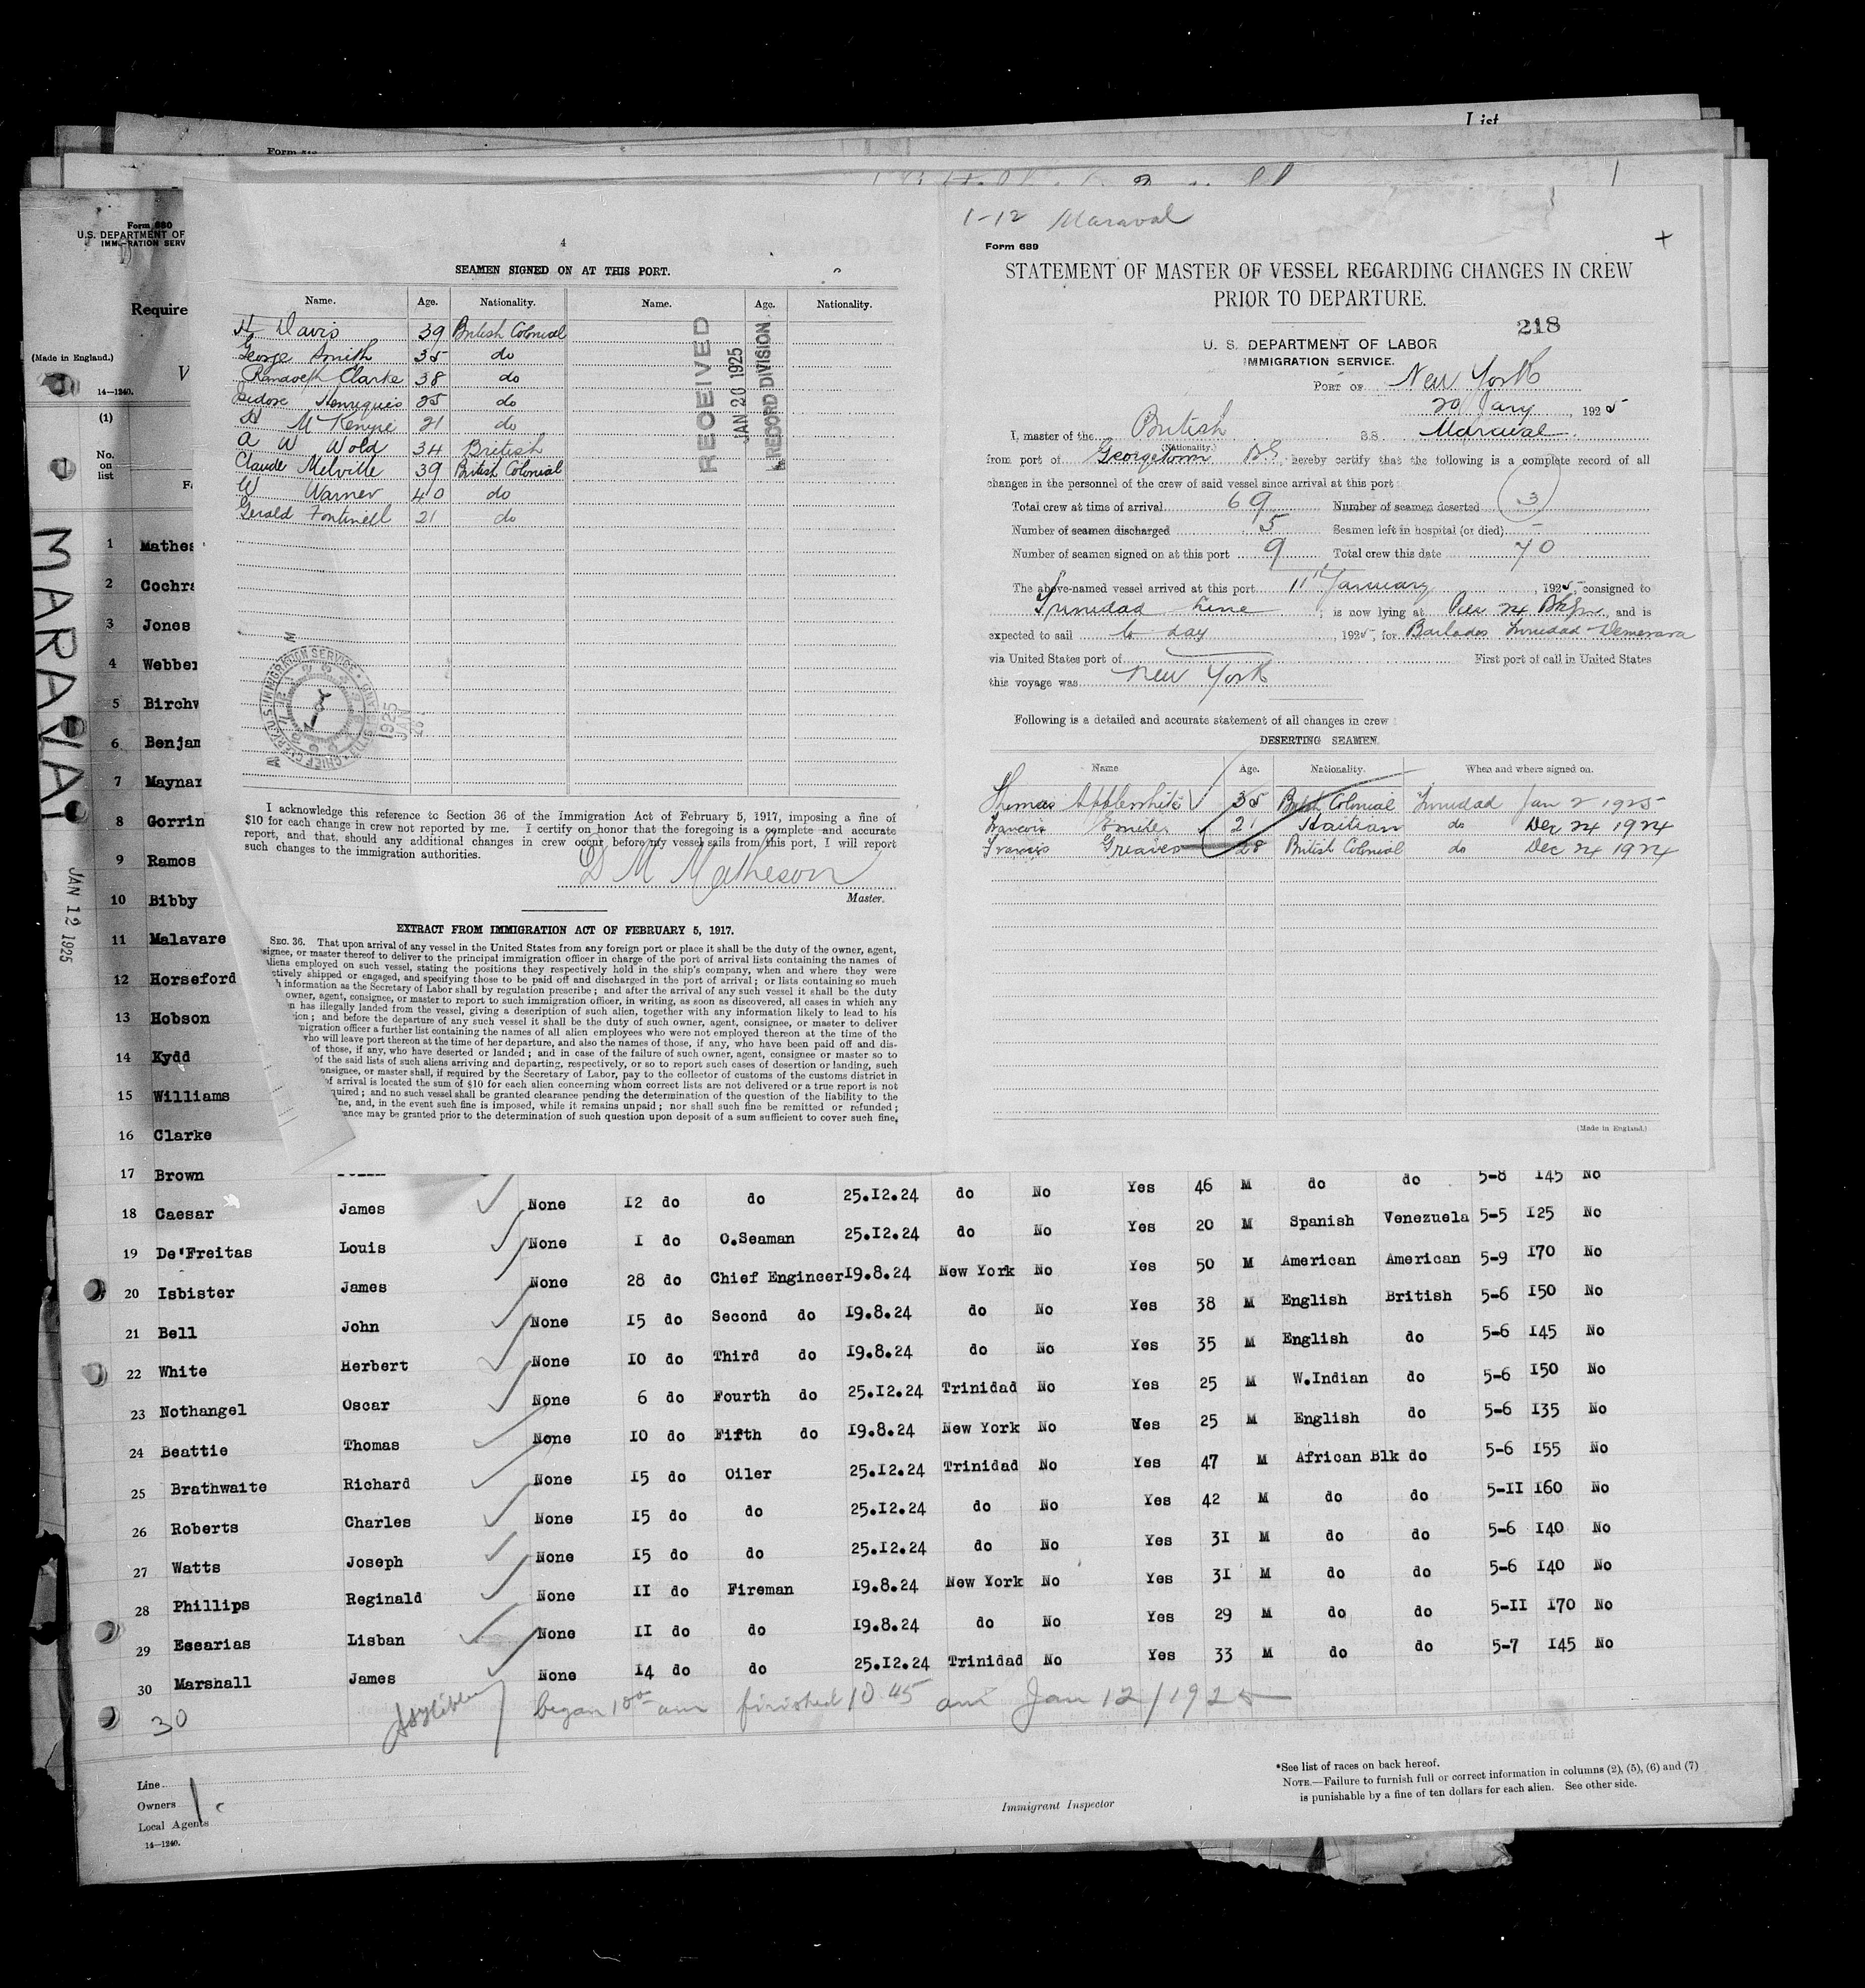 List
Form
1-12 Maraval
Form 680
U.S. DEPARTMENT OF
IMMIGRATION SERV
Require
(Made in England.)
V
14—1240.
(1)
No.
on
list
Fa
MARAVAL
JAN 12 1925
4
SEAMEN SIGNED ON AT THIS PORT.
Name. Age. Nationality. Name. Age. Nationality.
H Davis 39 British Colonial
George Smith 35 do
Clarke 38 do
Henriques 25 do
21 do
A W Wold 34 British
Claude Melville 39 British Colonial
W Warner 40 do
Gerald Fontinell 21 do
RECEIVED
JAN 20 1925
RECORD DIVISION
I acknowledge this reference to Section 36 of the Immigration Act of February 5, 1917, imposing a fine of
$10 for each change in crew not reported by me. I certify on honor that the foregoing is a complete and accurate
report, and that should any additional changes in crew occur before my vessel sails from this port, I will report
such changes to the immigration authorities.
D M Matheson
Master.
EXTRACT FROM IMMIGRATION ACT OF FEBRUARY 5, 1917.
SEC. 36. That upon arrival of any vessel in the United States from any foreign port or place it shall be the duty of the owner, agent,
signee, or master thereof to deliver to the principal immigration officer in charge of the port of arrival lists containing the names of
liens employed on such vessel, stating the positions they respectively hold in the ship's company, when and where they were
ctively shipped or engaged, and specifying those to be paid off and discharged in the port of arrival; or lists containing so much
h information as the Secretary of Labor shall by regulation prescribe; and after the arrival of any such vessel it shall be the duty
owner, agent, consignee, or master to report to such immigration officer, in writing, as soon as discovered, all cases in which any
n has illegally landed from the vessel, giving a description of such alien, together with any information likely to lead to his
ion; and before the departure of any such vessel it shall be the duty of such owner, agent, consignee, or master to deliver
migration officer a further list containing the names of all alien employees who were not employed thereon at the time of the
who will leave port thereon at the time of her departure, and also the names of those, if any, who have been paid off and dis-
of those, if any, who have deserted or landed; and in case of the failure of such owner, agent, consignee or master so to
of the said lists of such aliens arriving and departing, respectively, or so to report such cases of desertion or landing, such
onsignee, or master shall, if required by the Secretary of Labor, pay to the collector of customs of the customs district in
of arrival is located the sum of $10 for each alien concerning whom correct lists are not delivered or a true report is not
quired; and no such vessel shall be granted clearance pending the determination of the question of the liability to the
ne, and, in the event such fine is imposed, while it remains unpaid; nor shall such fine be remitted or refunded;
rance may be granted prior to the determination of such question upon deposit of a sum sufficient to cover such fine,
Form 689
STATEMENT OF MASTER OF VESSEL REGARDING CHANGES IN CREW
PRIOR TO DEPARTURE.
218
U. S. DEPARTMENT OF LABOR
IMMIGRATION SERVICE.
PORT OF New York
20 Jany, 1925
I, master of the British S.S. Maraval
(Nationality.)
from port of Georgetown B.G., hereby certify that the following is a complete record of all
changes in the personnel of the crew of said vessel since arrival at this port
Total crew at time of arrival 69 Number of seamen deserted 3
Number of seamen discharged 5 Seamen left in hospital (or died) -
Number of seamen signed on at this port 9 Total crew this date 70
The above-named vessel arrived at this port 11th January, 1925, consigned to
Trinidad Line, is now lying at Pier 24 Bklyn, and is
expected to sail to day 1925, for Barbados Trinidad Demerara
via United States port of First port of call in United States
this voyage was New York
Following is a detailed and accurate statement of all changes in crew
DESERTING SEAMEN.
Name Age. Nationality. When and where signed on.
Thomas Applewhite 35 British Colonial Trinidad Jan 2 1925
Francois 21 Haitian do Dec 24 1924
Francis Greaves 28 British Colonial do Dec 24 1924
(Made in England.)
1 Mathes
2 Cochra
3 Jones
4 Webber
5 Birchw
6 Benjam
7 Maynar
8 Gorrin
9 Ramos
10 Bibby
11 Malavare
12 Horseford
13 Hobson
14 Kydd
15 Williams
16 Clarke
17 Brown
18 Caesar James None 12 do do 25.12.24 do No Yes 46 M do do 5-8 145 No
19 De'Freitas Louis None 1 do O.Seaman 25.12.24 do No Yes 20 M Spanish Venezuela 5-5 125 No
20 Isbister James None 28 do Chief Engineer 19.8.24 New York No Yes 50 M American American 5-9 170 No
21 Bell John None 15 do Second do 19.8.24 do No Yes 38 M English British 5-6 150 No
22 White Herbert None 10 do Third do 19.8.24 do No Yes 35 M English do 5-6 145 No
23 Nothangel Oscar None 6 do Fourth do 25.12.24 Trinidad No Yes 25 M W.Indian do 5-6 150 No
24 Beattie Thomas None 10 do Fifth do 19.8.24 New York No Yes 25 M English do 5-6 135 No
25 Brathwaite Richard None 15 do Oiler 25.12.24 Trinidad No Yes 47 M African Blk do 5-6 155 No
26 Roberts Charles None 15 do do 25.12.24 do No Yes 42 M do do 5-11 160 No
27 Watts Joseph None 15 do do 25.12.24 do No Yes 31 M do do 5-6 140 No
28 Phillips Reginald None 11 do Fireman 19.8.24 New York No Yes 31 M do do 5-6 140 No
29 Escarias Lisban None 11 do do 19.8.24 do No Yes 29 M do do 5-11 170 No
30 Marshall James None 14 do do 25.12.24 Trinidad No Yes 33 M do do 5-7 145 No
30 began 10 00 am finished 10 45 am Jan 12/1925
Line
Owners
Local Agents
14—1240.
Immigrant Inspector
*See list of races on back hereof.
NOTE.—Failure to furnish full or correct information in columns (2), (5), (6) and (7)
is punishable by a fine of ten dollars for each alien. See other side.